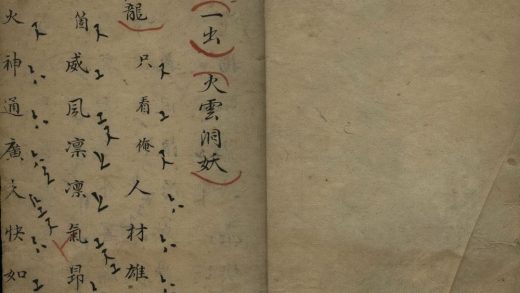 一出 火雲洞妖
龍 只看俺人材雄
箇威風凜凜氣昂
火神通廣大快如